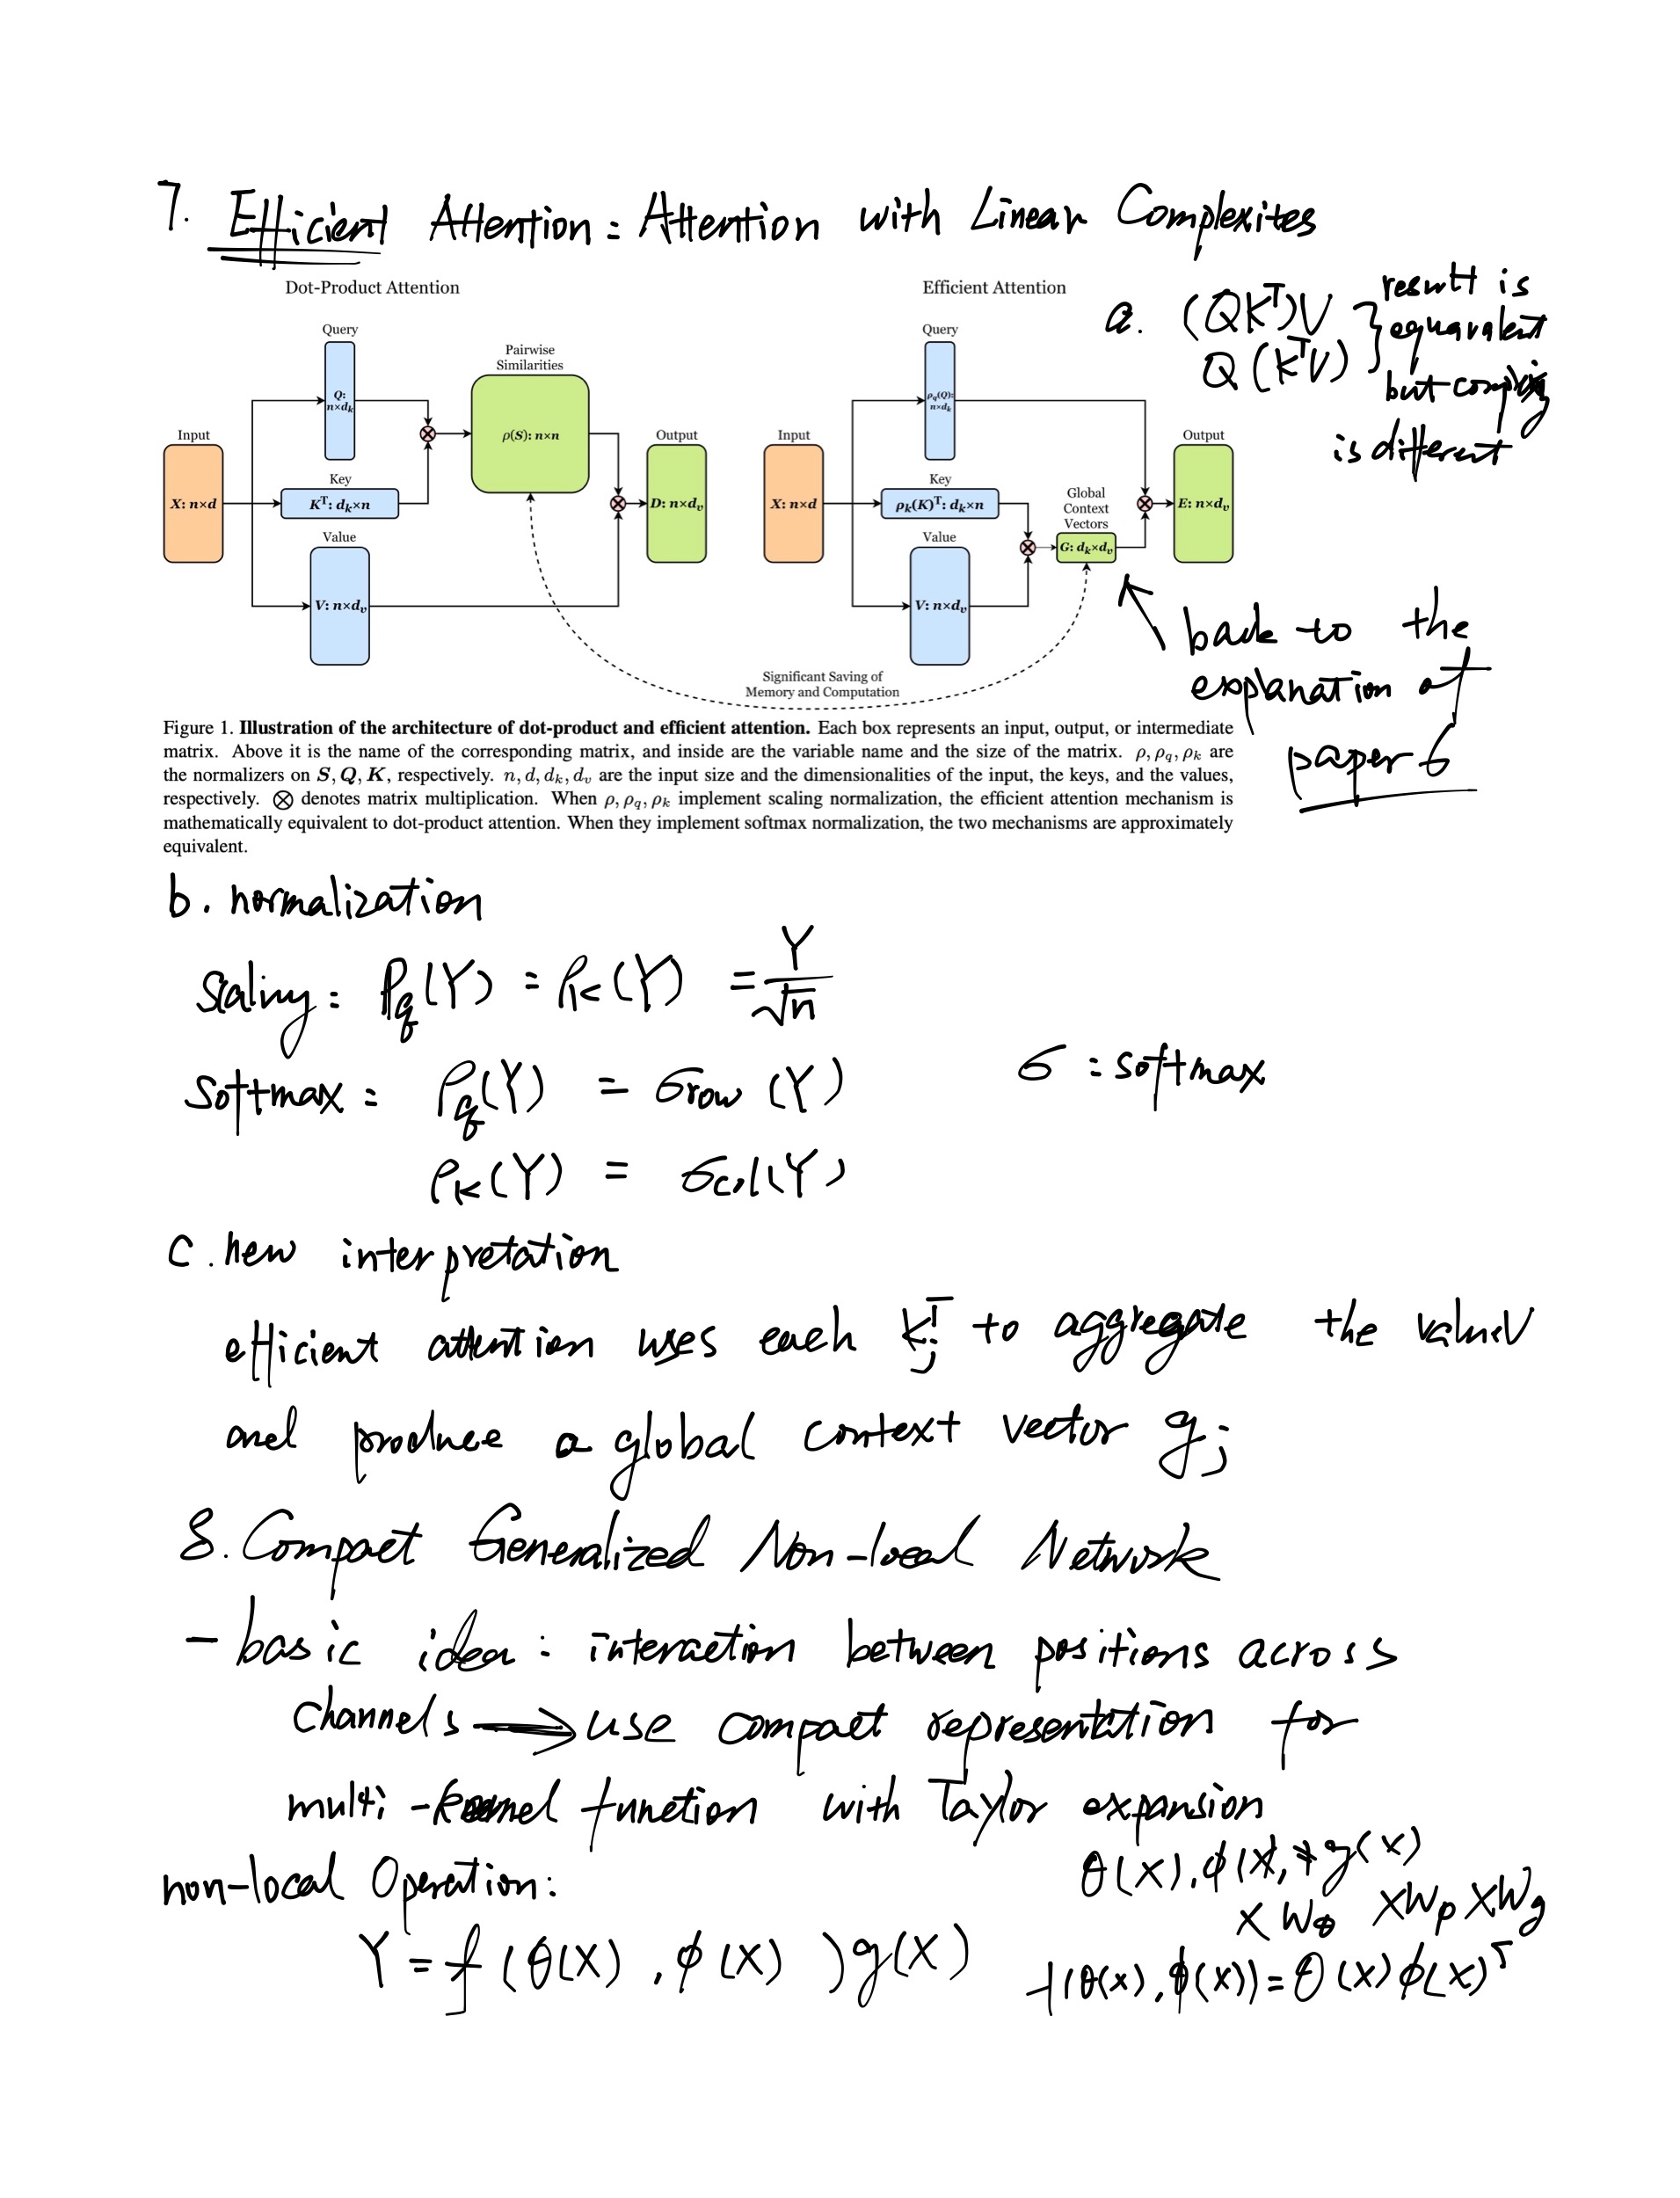 7. Efficient Attention: Attention with Linear Complexites
Dot-Product Attention
Query
Q:
n×dₖ
Pairwise
Similarities
ρ(S): n×n
Input
X: n×d
Key
Kᵀ: dₖ×n
Value
V: n×dᵥ
Output
D: n×dᵥ
Efficient Attention
Query
ρq(Q):
n×dₖ
Input
X: n×d
Key
ρₖ(K)ᵀ: dₖ×n
Value
V: n×dᵥ
Global
Context
Vectors
G: dₖ×dᵥ
Output
E: n×dᵥ
Significant Saving of
Memory and Computation
a. (QKᵀ)V
Q(KᵀV)
result is
equavalent
but complexity
is different
back to the
explanation of
paper 6
Figure 1. Illustration of the architecture of dot-product and efficient attention. Each box represents an input, output, or intermediate
matrix. Above it is the name of the corresponding matrix, and inside are the variable name and the size of the matrix. ρ, ρq, ρₖ are
the normalizers on S, Q, K, respectively. n, d, dₖ, dᵥ are the input size and the dimensionalities of the input, the keys, and the values,
respectively. ⊗ denotes matrix multiplication. When ρ, ρq, ρₖ implement scaling normalization, the efficient attention mechanism is
mathematically equivalent to dot-product attention. When they implement softmax normalization, the two mechanisms are approximately
equivalent.
b. normalization
Scaling: ρq(Y) = ρₖ(Y) = Y/√n
Softmax: ρq(Y) = σrow(Y)
σ: softmax
ρₖ(Y) = σcol(Y)
c. new interpretation
efficient attention uses each Kⱼᵀ to aggregate the value V
and produce a global context vector gⱼ
8. Compact Generalized Non-local Network
- basic idea: interaction between positions across
channels → use compact representation for
multi-kernel function with Taylor expansion
non-local Operation:
θ(X), φ(X), g(X)
XWθ XWφ XWg
Y = f(θ(X), φ(X))g(X)
f(θ(X), φ(X)) = θ(X)φ(X)ᵀ